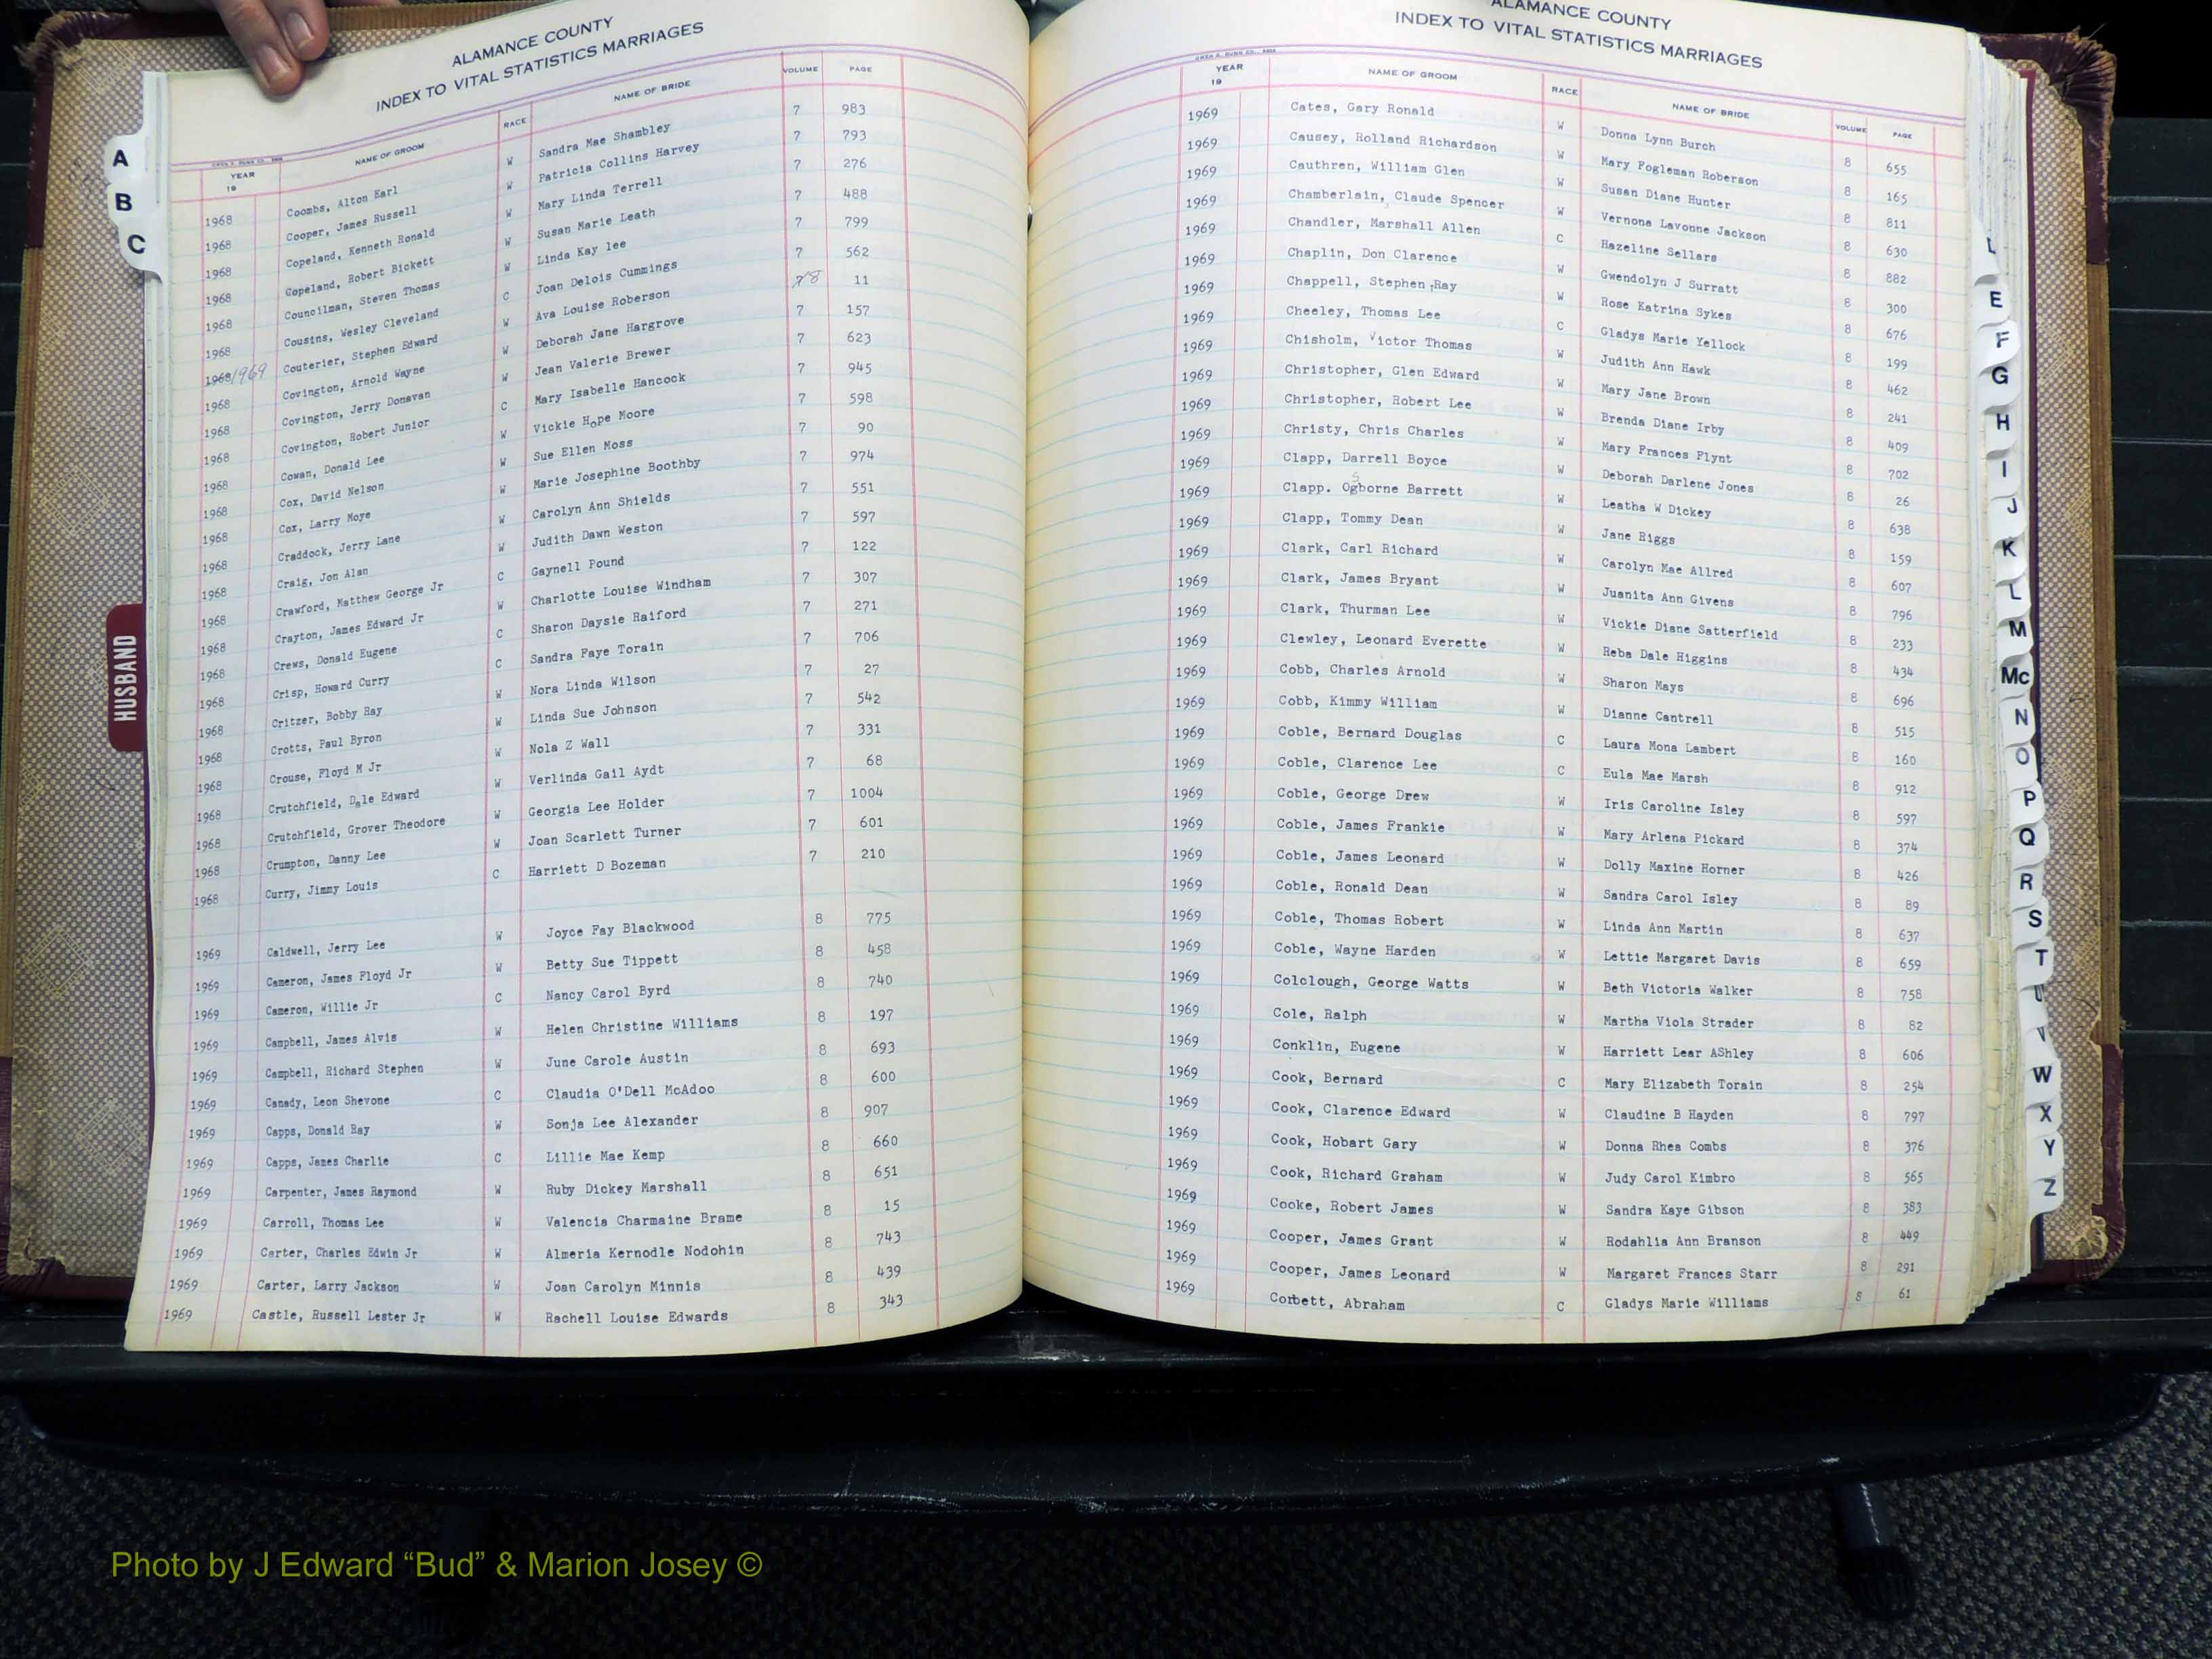 ALAMANCE COUNTY
INDEX TO VITAL STATISTICS MARRIAGES
YEAR 19 NAME OF GROOM RACE NAME OF BRIDE VOLUME PAGE
1968 Coombs, Alton Earl W Sandra Mae Shambley 7 983
1968 Cooper, James Russell W Patricia Collins Harvey 7 793
1968 Copeland, Kenneth Ronald W Mary Linda Terrell 7 276
1968 Copeland, Robert Bickett W Susan Marie Leath 7 488
1968 Councilman, Steven Thomas W Linda Kay lee 7 799
1968 Cousins, Wesley Cleveland C Joan Delois Cummings 7 562
1968/1969 Couterier, Stephen Edward W Ava Louise Roberson 78 11
1968 Covington, Arnold Wayne W Deborah Jane Hargrove 7 157
1968 Covington, Jerry Donavan W Jean Valerie Brewer 7 623
1968 Covington, Robert Junior C Mary Isabelle Hancock 7 945
1968 Cowan, Donald Lee W Vickie Hope Moore 7 598
1968 Cox, David Nelson W Sue Ellen Moss 7 90
1968 Cox, Larry Moye W Marie Josephine Boothby 7 974
1968 Craddock, Jerry Lane W Carolyn Ann Shields 7 551
1968 Craig, Jon Alan W Judith Dawn Weston 7 597
1968 Crawford, Matthew George Jr C Gaynell Pound 7 122
1968 Crayton, James Edward Jr W Charlotte Louise Windham 7 307
1968 Crews, Donald Eugene C Sharon Daysie Raiford 7 271
1968 Crisp, Howard Curry C Sandra Faye Torain 7 706
1968 Critzer, Bobby Ray W Nora Linda Wilson 7 27
1968 Crotts, Paul Byron W Linda Sue Johnson 7 542
1968 Crouse, Floyd M Jr W Nola Z Wall 7 331
1968 Crutchfield, Dale Edward W Verlinda Gail Aydt 7 68
1968 Crutchfield, Grover Theodore W Georgia Lee Holder 7 1004
1968 Crumpton, Danny Lee W Joan Scarlett Turner 7 601
1968 Curry, Jimmy Louis C Harriett D Bozeman 7 210
1969 Caldwell, Jerry Lee W Joyce Fay Blackwood 8 775
1969 Cameron, James Floyd Jr W Betty Sue Tippett 8 458
1969 Cameron, Willie Jr C Nancy Carol Byrd 8 740
1969 Campbell, James Alvis W Helen Christine Williams 8 197
1969 Campbell, Richard Stephen W June Carole Austin 8 693
1969 Canady, Leon Shevone C Claudia O'Dell McAdoo 8 600
1969 Capps, Donald Ray W Sonja Lee Alexander 8 907
1969 Capps, James Charlie C Lillie Mae Kemp 8 660
1969 Carpenter, James Raymond W Ruby Dickey Marshall 8 651
1969 Carroll, Thomas Lee W Valencia Charmaine Brame 8 15
1969 Carter, Charles Edwin Jr W Almeria Kernodle Nodohin 8 743
1969 Carter, Larry Jackson W Joan Carolyn Minnis 8 439
1969 Castle, Russell Lester Jr W Rachell Louise Edwards 8 343
ALAMANCE COUNTY
INDEX TO VITAL STATISTICS MARRIAGES
YEAR 19 NAME OF GROOM RACE NAME OF BRIDE VOLUME PAGE
1969 Cates, Gary Ronald W Donna Lynn Burch 8 655
1969 Causey, Rolland Richardson W Mary Fogleman Roberson 8 165
1969 Cauthren, William Glen W Susan Diane Hunter 8 811
1969 Chamberlain, Claude Spencer W Vernona Lavonne Jackson 8 630
1969 Chandler, Marshall Allen C Hazeline Sellars 8 882
1969 Chaplin, Don Clarence W Gwendolyn J Surratt 8 300
1969 Chappell, Stephen Ray W Rose Katrina Sykes 8 676
1969 Cheeley, Thomas Lee C Gladys Marie Yellock 8 199
1969 Chisholm, Victor Thomas W Judith Ann Hawk 8 462
1969 Christopher, Glen Edward W Mary Jane Brown 8 241
1969 Christopher, Robert Lee W Brenda Diane Irby 8 409
1969 Christy, Chris Charles W Mary Frances Flynt 8 702
1969 Clapp, Darrell Boyce W Deborah Darlene Jones 8 26
1969 Clapp. Ogborne Barrett W Leatha W Dickey 8 638
1969 Clapp, Tommy Dean W Jane Riggs 8 159
1969 Clark, Carl Richard W Carolyn Mae Allred 8 607
1969 Clark, James Bryant W Juanita Ann Givens 8 796
1969 Clark, Thurman Lee W Vickie Diane Satterfield 8 233
1969 Clewley, Leonard Everette W Reba Dale Higgins 8 434
1969 Cobb, Charles Arnold W Sharon Mays 8 696
1969 Cobb, Kimmy William W Dianne Cantrell 8 515
1969 Coble, Bernard Douglas C Laura Mona Lambert 8 160
1969 Coble, Clarence Lee C Eula Mae Marsh 8 912
1969 Coble, George Drew W Iris Caroline Isley 8 597
1969 Coble, James Frankie W Mary Arlena Pickard 8 374
1969 Coble, James Leonard W Dolly Maxine Horner 8 426
1969 Coble, Ronald Dean W Sandra Carol Isley 8 89
1969 Coble, Thomas Robert W Linda Ann Martin 8 637
1969 Coble, Wayne Harden W Lettie Margaret Davis 8 659
1969 Colclough, George Watts W Beth Victoria Walker 8 758
1969 Cole, Ralph W Martha Viola Strader 8 82
1969 Conklin, Eugene W Harriett Lear AShley 8 606
1969 Cook, Bernard C Mary Elizabeth Torain 8 254
1969 Cook, Clarence Edward W Claudine B Hayden 8 797
1969 Cook, Hobart Gary W Donna Rhea Combs 8 376
1969 Cook, Richard Graham W Judy Carol Kimbro 8 565
1969 Cooke, Robert James W Sandra Kaye Gibson 8 383
1969 Cooper, James Grant W Rodahlia Ann Branson 8 449
1969 Cooper, James Leonard W Margaret Frances Starr 8 291
1969 Corbett, Abraham C Gladys Marie Williams 8 61
A
B
C
HUSBAND
E
F
G
H
I
J
K
L
M
Mc
N
O
P
Q
R
S
T
U
V
W
X
Y
Z
Photo by J Edward “Bud” & Marion Josey ©